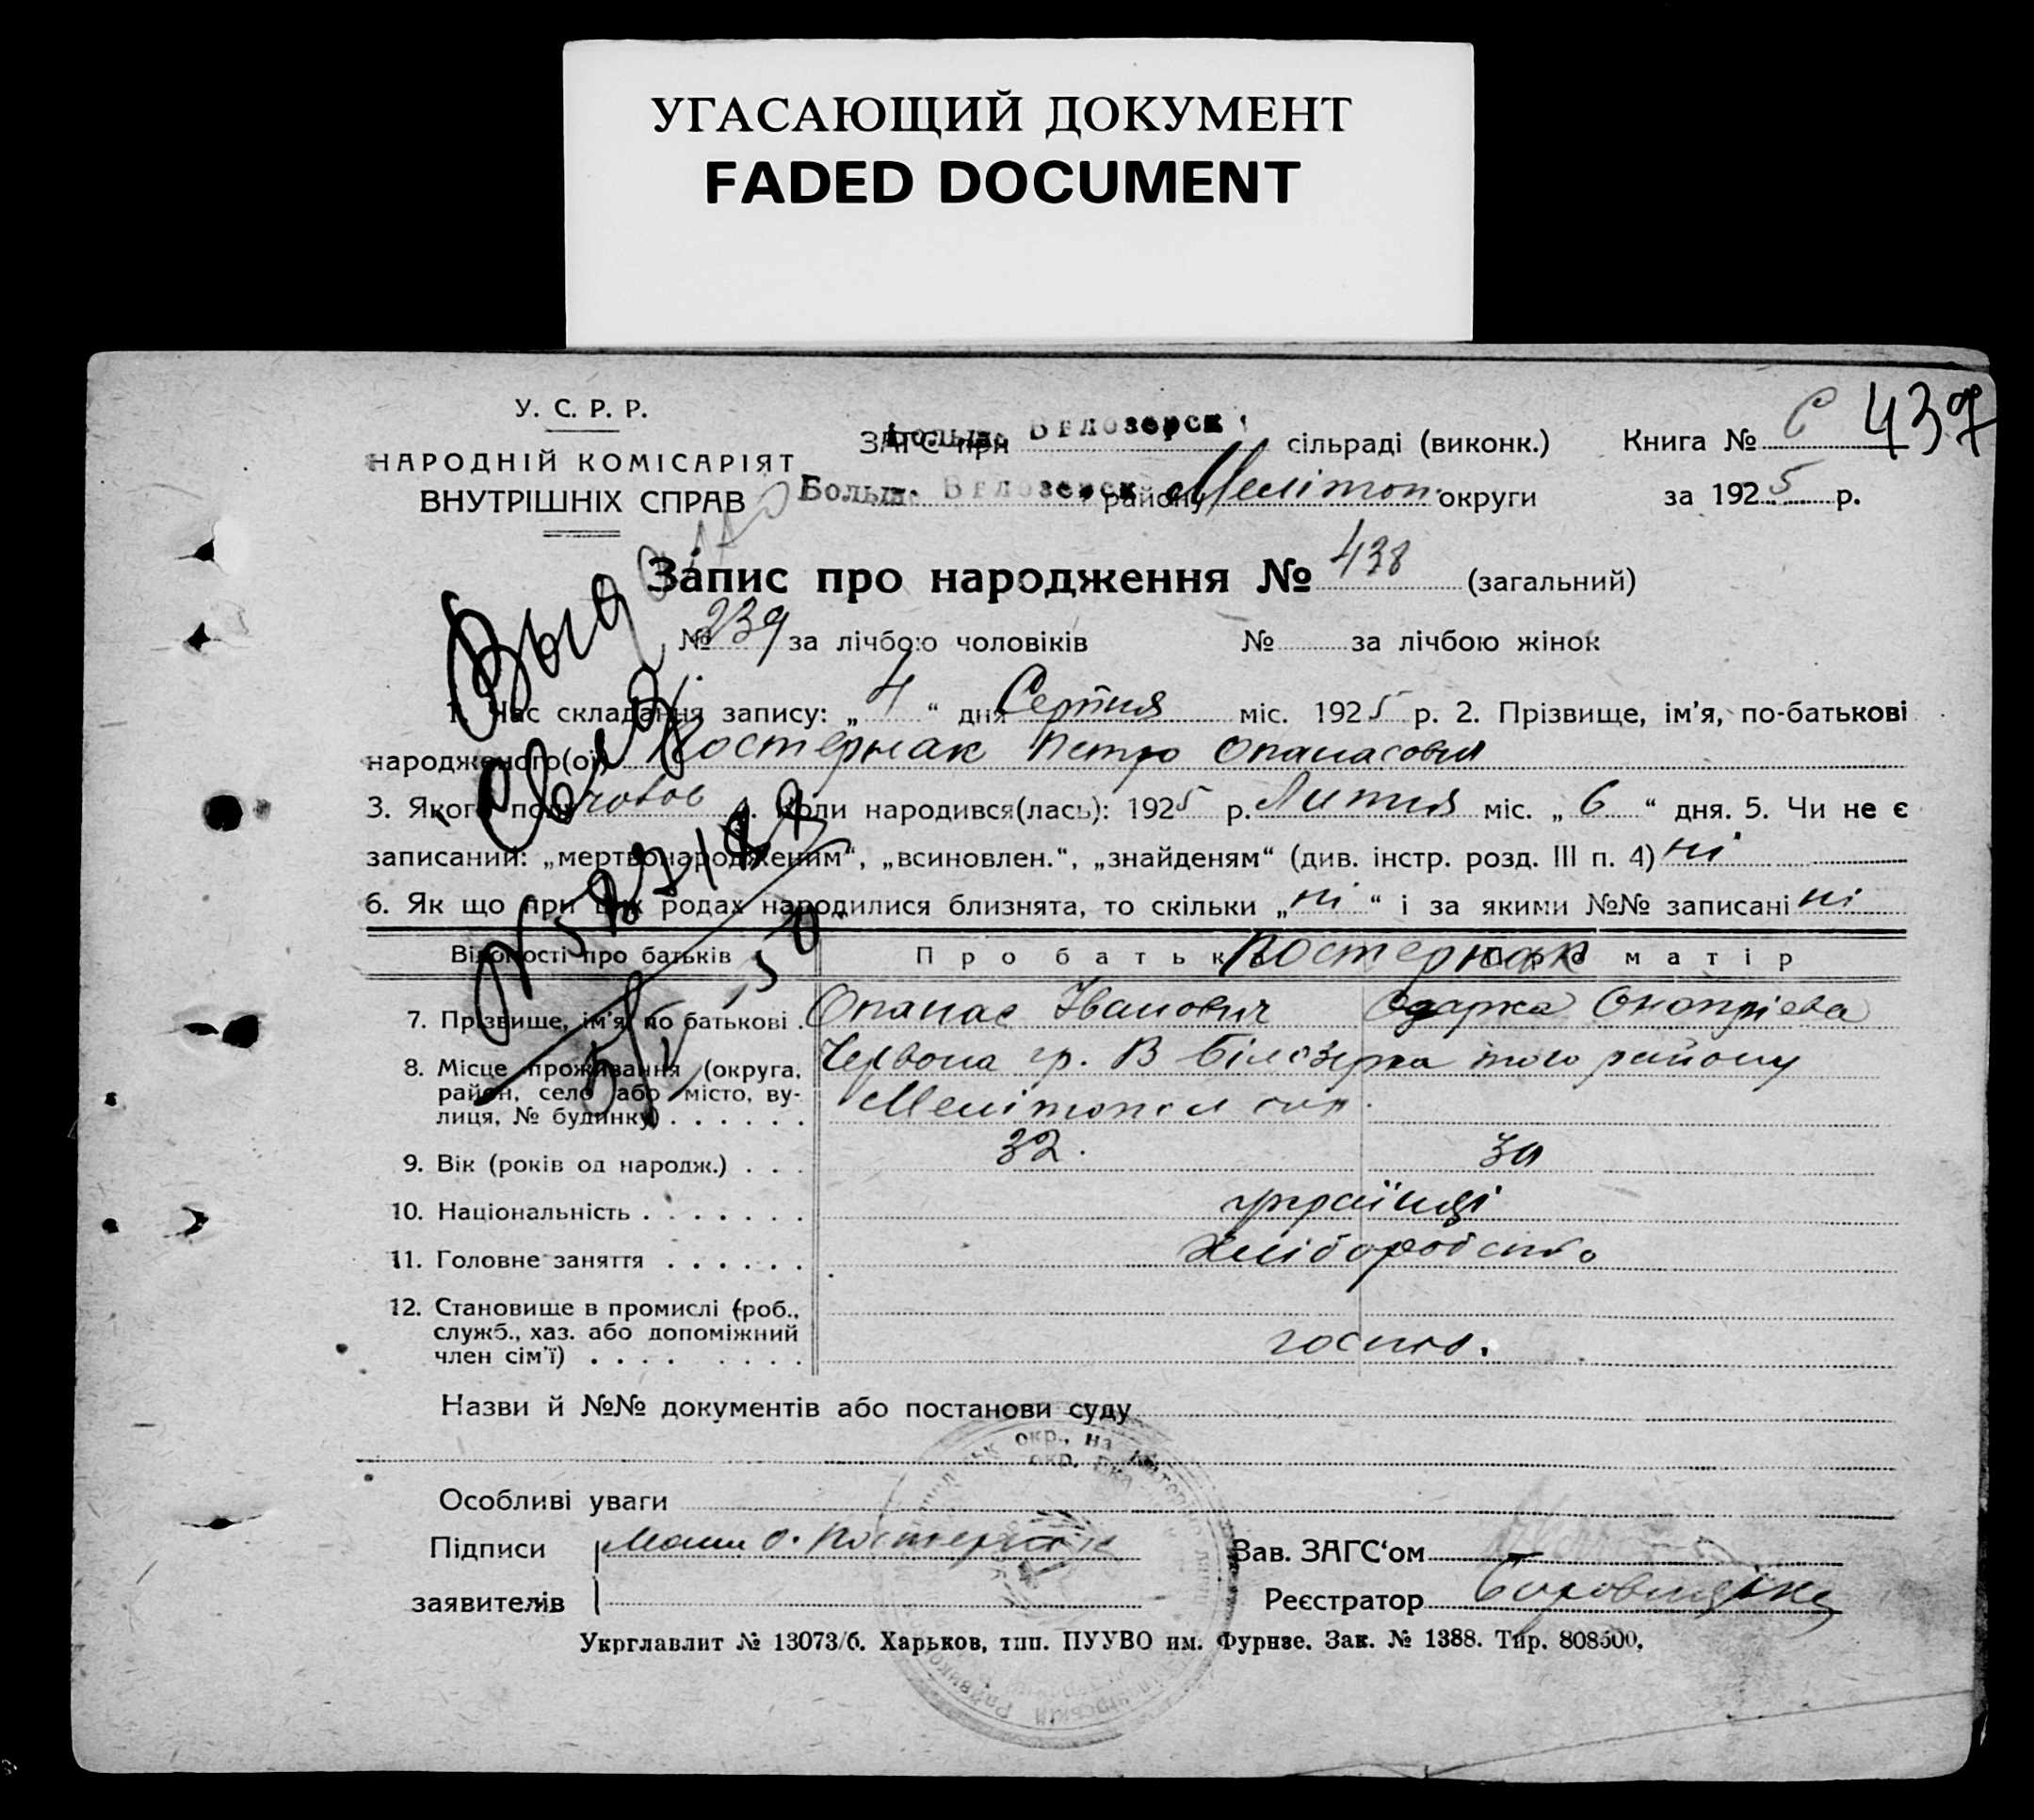 УГАСАЮЩИЙ ДОКУМЕНТ
FADED DOCUMENT
У. С. Р. Р.
НАРОДНІЙ КОМІСАРІЯТ
ВНУТРІШНІХ СПРАВ
ЗАГС при Больш. Бѣлозерск сільраді (виконк.) Книга № 6 439
Больш. Бѣлозерск району Мелітоп. округи за 1925 р.
Запис про народження № 438 (загальний)
№ 239 за лічбою чоловіків № за лічбою жінок
1. Час складання запису: „4“ дня Серпня міс. 1925 р. 2. Прізвище, ім'я, по-батькові
народженого(ої) Постернак Петро Опанасович
3. Якого полу чолов 4. Коли народився(лась): 1925 р. Липня міс. „6“ дня. 5. Чи не є
записаний: „мертвонародженим“, „всиновлен.“, „знайденям“ (див. інстр. розд. III п. 4) ні
6. Як що при цих родах народилися близнята, то скільки „ні“ і за якими №№ записані ні
Выдано
Свид.
Відомості про батьків Про батька Постернак Про матір
7. Прізвище, ім'я, по батькові . Опанас Іванович Одарка Оноприєва
8. Місце проживання (округа, Червона гр. В Білозерка того району
район, село або місто, ву- Мелітопол окр.
лиця, № будинку) . . . . . .
9. Вік (років од народж.) . . . 32. 30
10. Національність . . . . . . . українці
11. Головне заняття . . . . . . Хліборобство
12. Становище в промислі (роб.,
служб., хаз. або допоміжний
член сім'ї) . . . . . . . . госпо.
Назви й №№ документів або постанови суду
Особливі уваги
Підписи О. Постернак Зав. ЗАГС‘ом
заявителів Реєстратор
Укрглавлит № 13073/б. Харьков, тип. ПУУВО им. Фурнзе. Зак. № 1388. Тир. 808500.